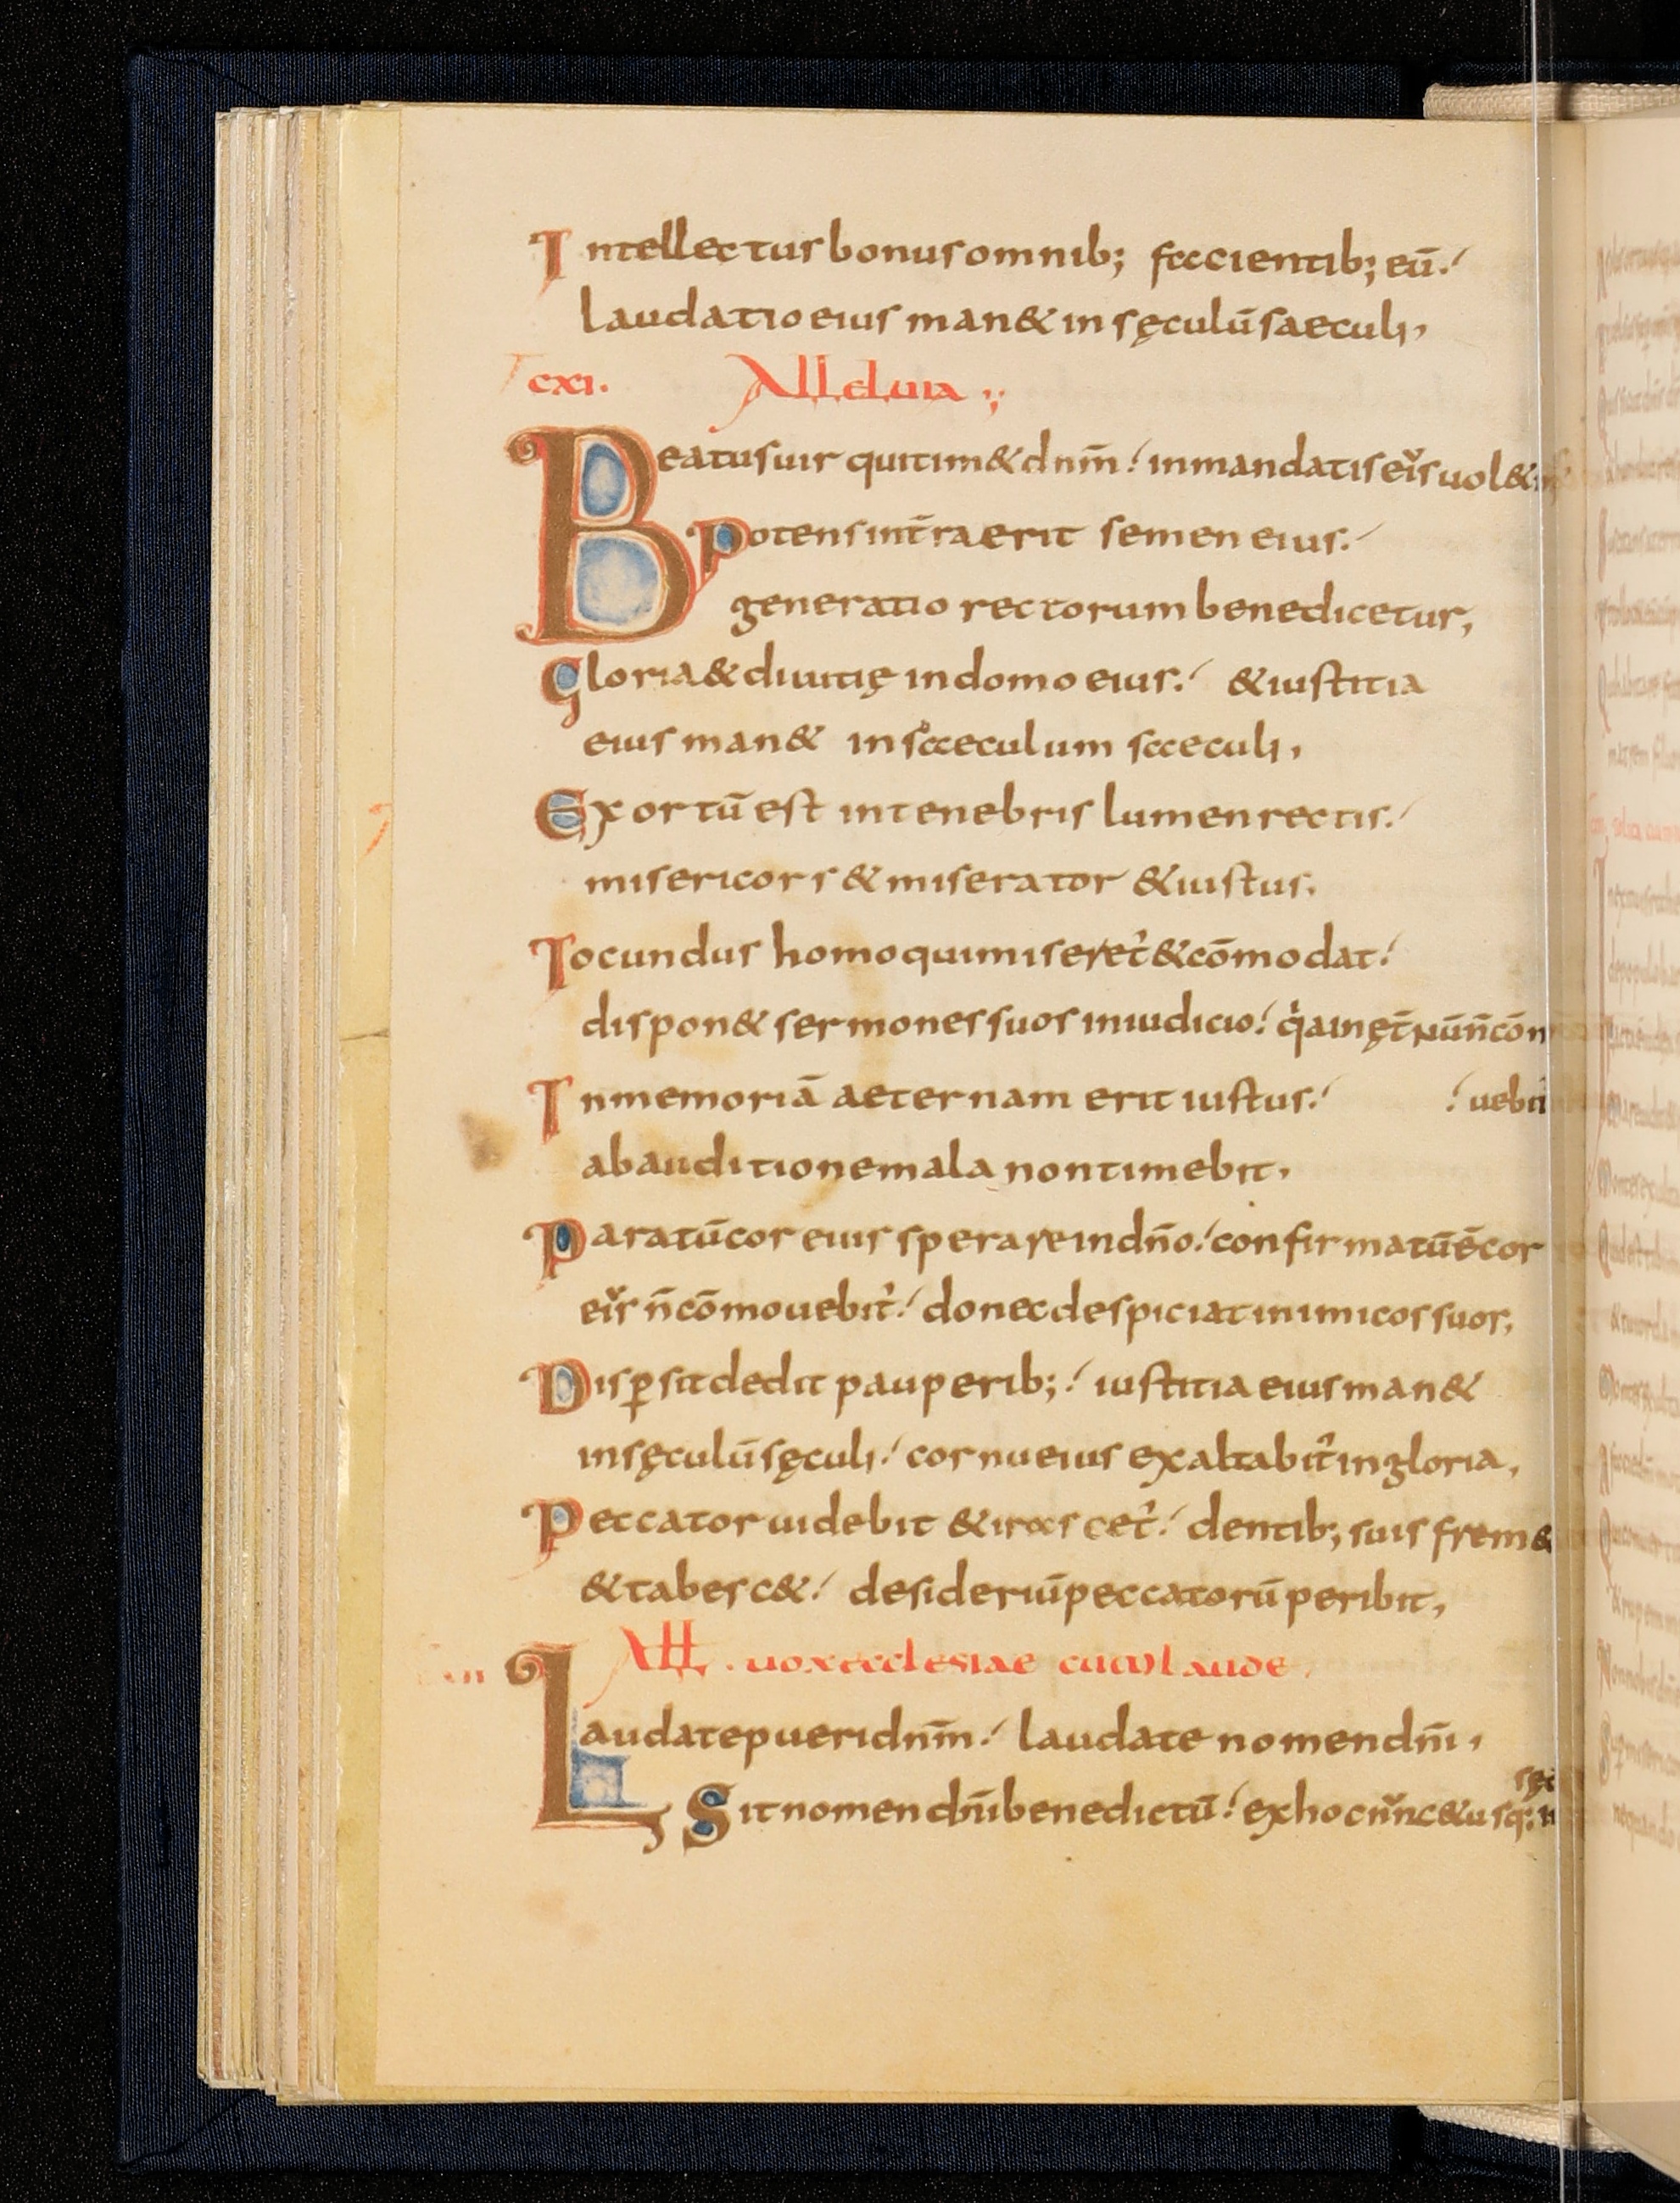 Intellectus bonus omnib; facientib; eū.
laudatio eius man& in sęculū saeculi,
cxi. Alleluia ;
Beatus uir qui tim& dnm̄. in mandatis eiꝰs uol&
Potens in t̄ra erit semen eius.
generatio rectorum benedicetur,
Gloria & diuitię in domo eius. & iustitia
eius man& in saeculum saeculi,
Exortū est in tenebris lumen rectis.
misericors & miserator & iustus.
Iocundus homo qui miseret̉ & cōmodat.
dispon& sermones suos in iudicio. qͥa in ęt̄nū n̄ cōm
In memoriā aeternam erit iustus. uebit̉
ab auditione mala non timebit,
Paratū cor eius sperare in dn̄o. confirmatū ē cor
eiꝰs n̄ cōmouebit̉. donec despiciat inimicos suos,
Disꝑsit dedit pauperib;. iustitia eius man&
in sęculū sęculi. cornu eius exaltabit̉ in gloria,
Peccator uidebit & irascet̉. dentib; suis frem&
& tabesc&. desideriū peccatorū peribit,
All. uox ecclesiae cum laude.
Laudate pueri dnm̄. laudate nomen dnī,
sęc
Sit nomen dnī benedictū. ex hoc nunc & usq;